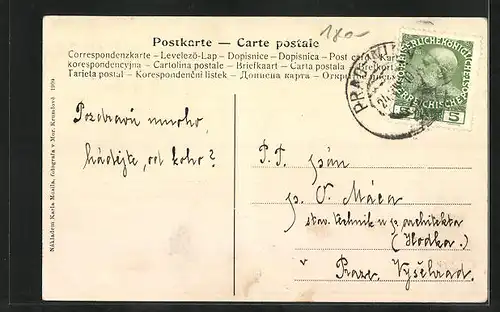 180-
Postkarte — Carte postale
Correspondenzkarte – Levelező-Lap – Dopisnice – Dopisnica – Post card – Karta
korespondencyjna – Cartolina postale – Briefkaart – Carta postala – Brefkort
Tarjeta postal – Korespondenční lístek – Дописна карта – Открытое письмо
5 5
Nákladem Karla Masila, fotografa v Mor. Krumlově 1904
Pozdravů mnoho,
hádejte, od koho?
P. T. pán
p. O. Máca
stav. technik u p. architekta
(Hodka.)
v Praze Vyšehrad.